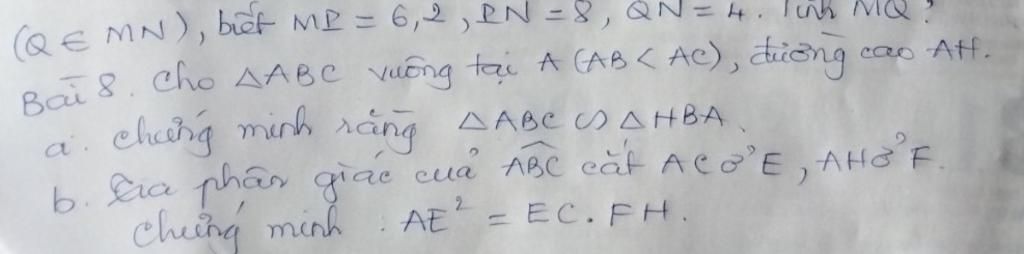 (Q ∈ MN), biết MP = 6,2, PN = 8, QN = 4. Tính MQ?
Bài 8. Cho △ABC vuông tại A (AB < AC), đường cao AH.
a. chứng minh rằng △ABC ∽ △HBA.
b. Tia phân giác của ABC cắt AC ở E, AH ở F.
chứng minh : AE² = EC. FH.